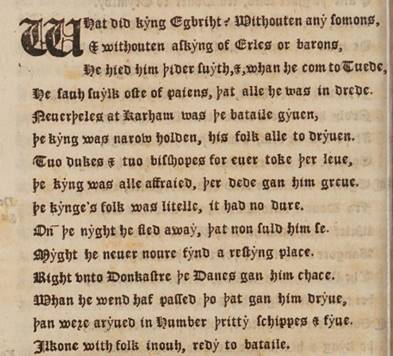 What did kẏng Egbriht? Withouten anẏ somons,
& withouten askẏng of Erles or barons,
He hied him þider suẏth, &, whan he com to Tuede,
He sauh suẏlk oste of paiens, þat alle he was in drede.
Neuerþeles at Karham was þe bataile gẏuen,
þe kẏng was narow holden, his folk alle to drẏuen.
Tuo dukes & tuo bisshopes for euer toke þer leue,
þe kẏng was alle affraied, þer dede gan him greue.
þe kẏnge's folk was litelle, it had no dure.
On þe nẏght he fled awaẏ, þat non suld him se.
Mẏght he neuer noure fẏnd a restẏng place.
Right vnto Donkastre þe Danes gan him chace.
Whan he wend haf passed þo þat gan him drẏue,
þan weɽe arẏued in Humber þrittẏ schippes & fẏue.
Ilkone with folk inouh, redẏ to bataile.